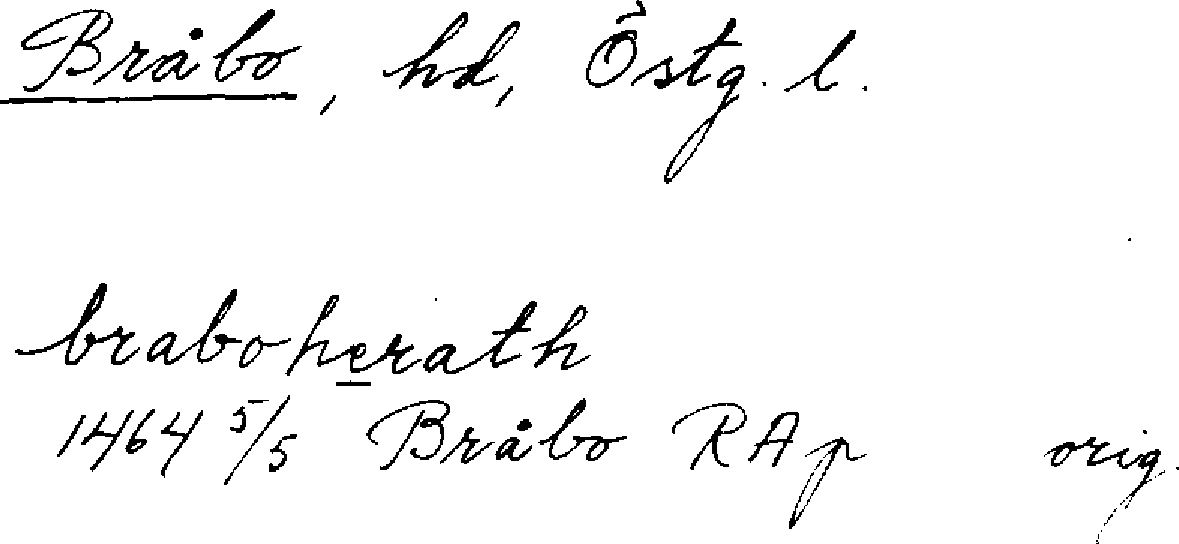 Bråbo, hd, Östg. l.
braboherath
1464 5/5 Bråbo RAp orig.